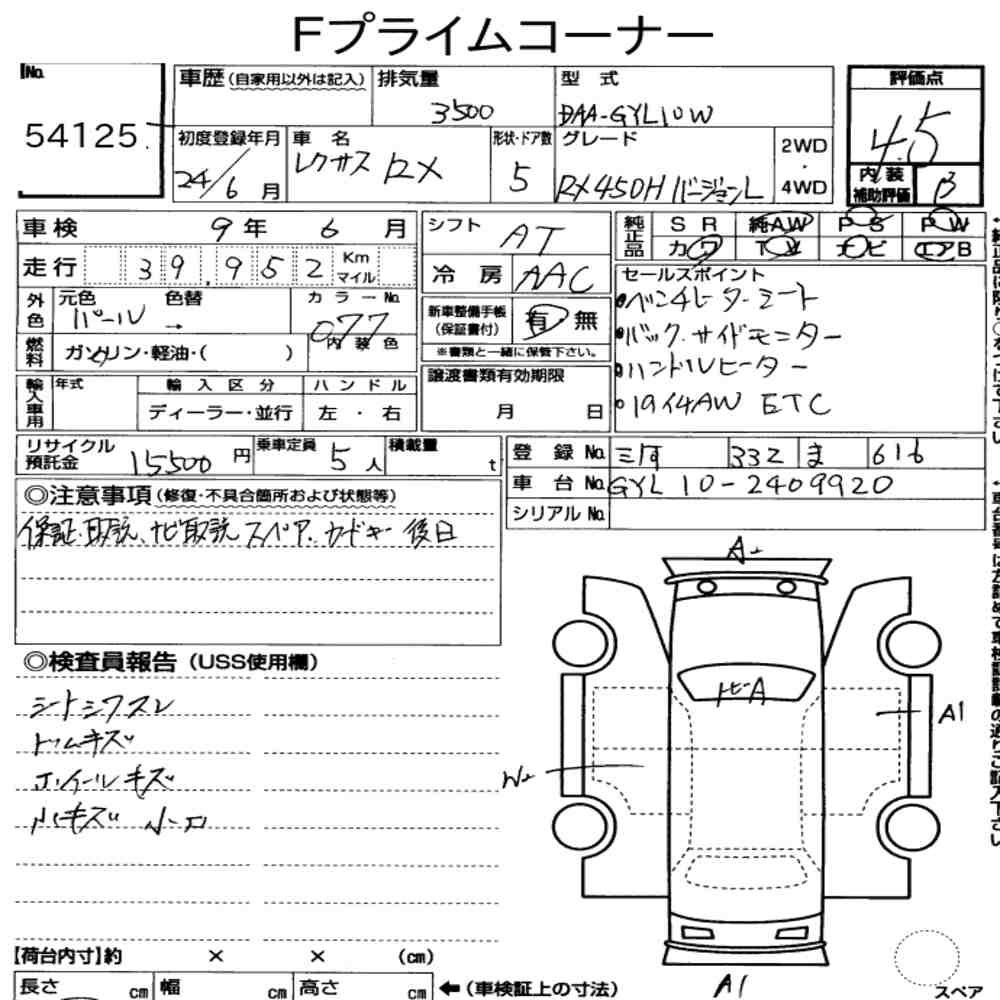 Fプライムコーナー
No.
54125
車歴(自家用以外は記入)
排気量
3500
型 式
DAA-GYL10W
評価点
4.5
初度登録年月
24/6月
車 名
レクサス RX
形状・ドア数
5
グレード
RX450H バージョンL
2WD
・
4WD
内 装
補助評価
B
車検 9年 6月
走行 39,952 Km マイル
外色 元色 色替
パール →
カラーNo.
077
内装色
燃料 ガソリン・軽油・( )
シフト AT
冷 房 AAC
新車整備手帳
(保証書付)
有 無
※書類と一緒に保管下さい。
純正品 SR 純AW PS PW
カワ TV ナビ エアB
セールスポイント
・ベンチレーターシート
・バック、サイドモニター
・ハンドルヒーター
・19インチAW ETC
輸入車用 年式
輸 入 区 分
ディーラー・並行
ハ ン ド ル
左 ・ 右
譲渡書類有効期限
月 日
リサイクル
預託金
15500円
乗車定員 5人
積載量 t
登 録 No. 三河 332 ま 616
車 台 No. GYL10-2409920
シリアル No.
◎注意事項(修復・不具合箇所および状態等)
保証、取説、ナビ取説、スペア、カードキー 後日
◎検査員報告(USS使用欄)
シートシワスレ
トリムキズ
ホイールキズ
小キズ 小凹
A
トビーA
A1
W
A1
【荷台内寸】約 × × (cm)
長さ cm 幅 cm 高さ cm ←(車検証上の寸法)
スペア